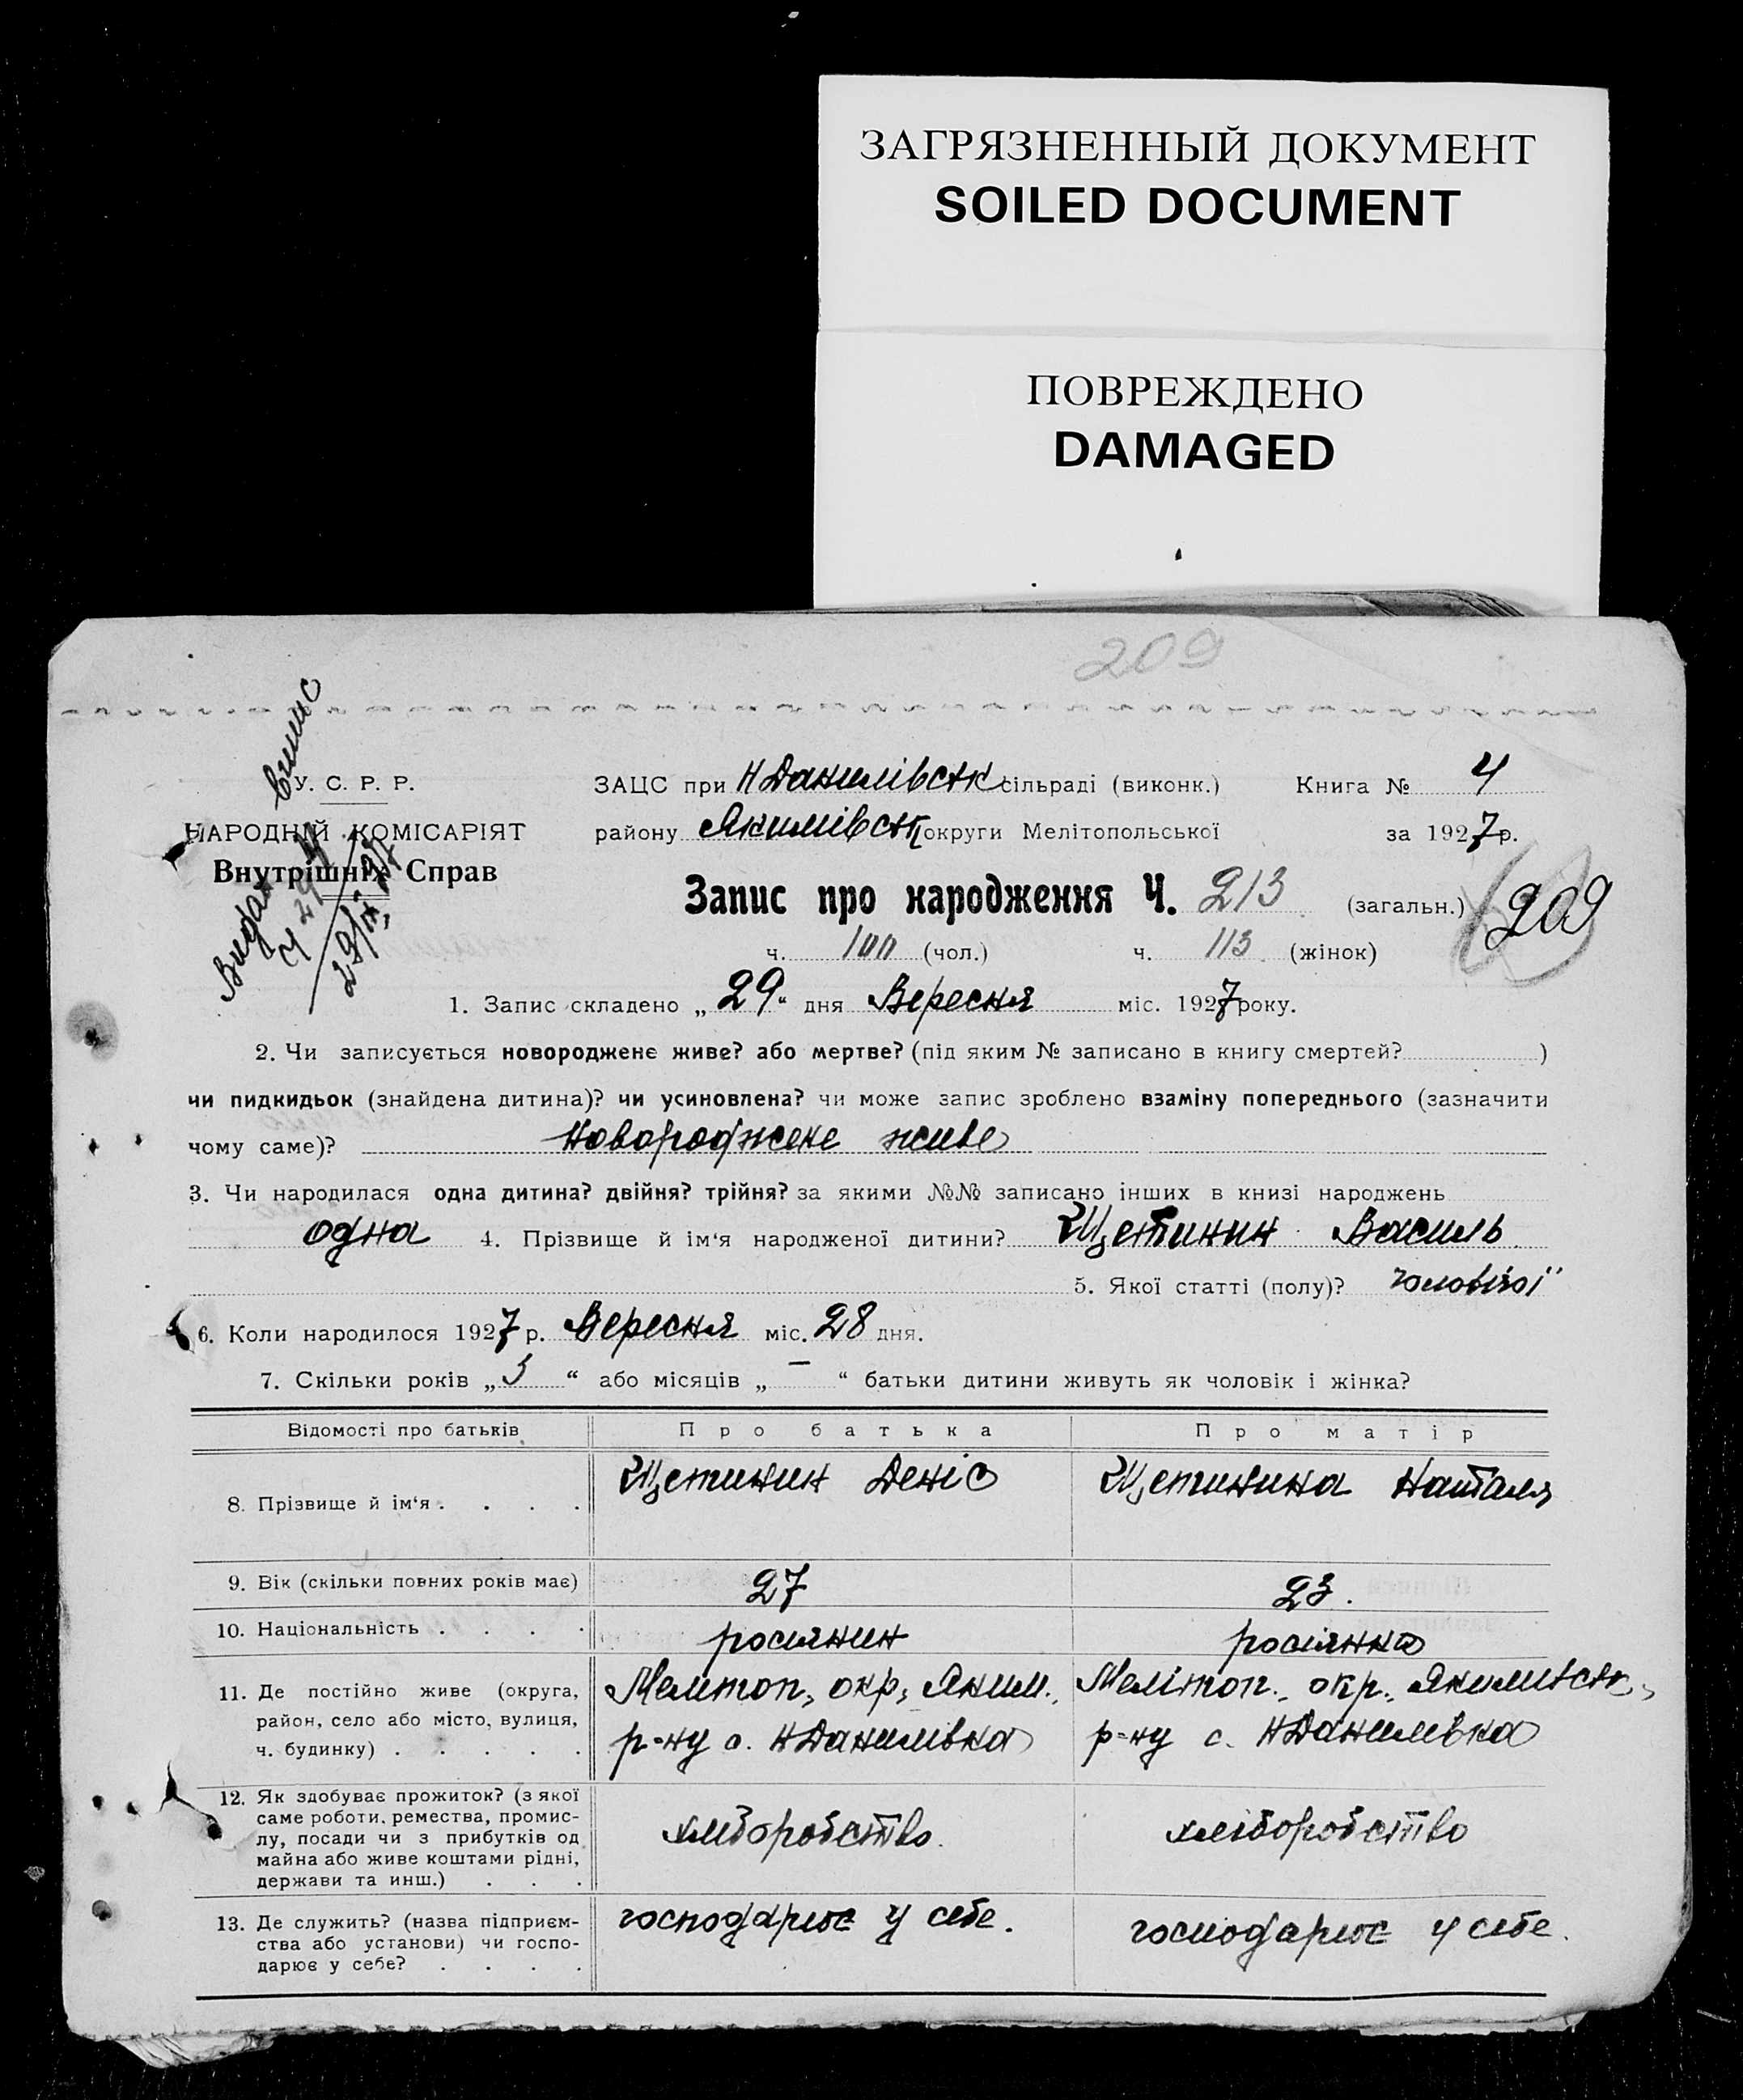 ЗАГРЯЗНЕННЫЙ ДОКУМЕНТ
SOILED DOCUMENT
ПОВРЕЖДЕНО
DAMAGED
209
Видан випис
29/ІХ
У. С. Р. Р.
НАРОДНІЙ КОМІСАРІЯТ
Внутрішніх Справ
ЗАЦС при НДанилівськ сільраді (виконк.) Книга № 4
району Якимівськ округи Мелітопольської за 1927 р.
Запис про народження Ч. 213 (загальн.) 209
ч. 100 (чол.) ч. 113 (жінок)
1. Запис складено „ 29 “ дня Вересня міс. 1927 року.
2. Чи записується новороджене живе? або мертве? (під яким № записано в книгу смертей? )
чи пидкидьок (знайдена дитина)? чи усиновлена? чи може запис зроблено взаміну попереднього (зазначити
чому саме)? Новороджене живе
3. Чи народилася одна дитина? двійня? трійня? за якими №№ записано інших в книзі народжень
одна 4. Прізвище й ім‘я народженої дитини? Щетинин Василь
5. Якої статті (полу)? чоловічої
6. Коли народилося 1927 р. Вересня міс. 28 дня.
7. Скільки років „ 3 “ або місяців „ – “ батьки дитини живуть як чоловік і жінка?
Відомості про батьків Про батька Про матір
8. Прізвище й ім‘я . . . . Щетинин Деніс Щетинина Наталя
9. Вік (скільки повних років має) 27 23.
10. Національність . . . . росиянин росиянка
11. Де постійно живе (округа, Мелитоп, окр, Яким., Мелітоп., окр., Якимівськ,
район, село або місто, вулиця,
ч. будинку) . . . . . р-ну с. НДанилівка р-ну с. НДанилівка
12. Як здобуває прожиток? (з якої
саме роботи, ремества, промис-
лу, посади чи з прибутків од хліборобство. хліборобство
майна або живе коштами рідні,
держави та инш.) . . .
13. Де служить? (назва підприєм- господарює у себе. господарює у себе.
ства або установи) чи госпо-
дарює у себе? . . . .